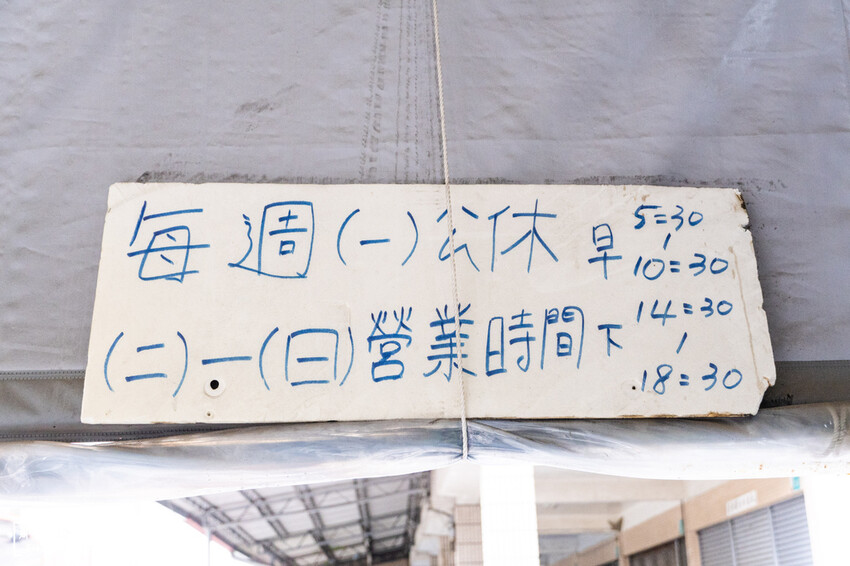 每週(一)公休 早 5=30
|
10=30
(二)—(日)營業時間 下 14=30
|
18=30